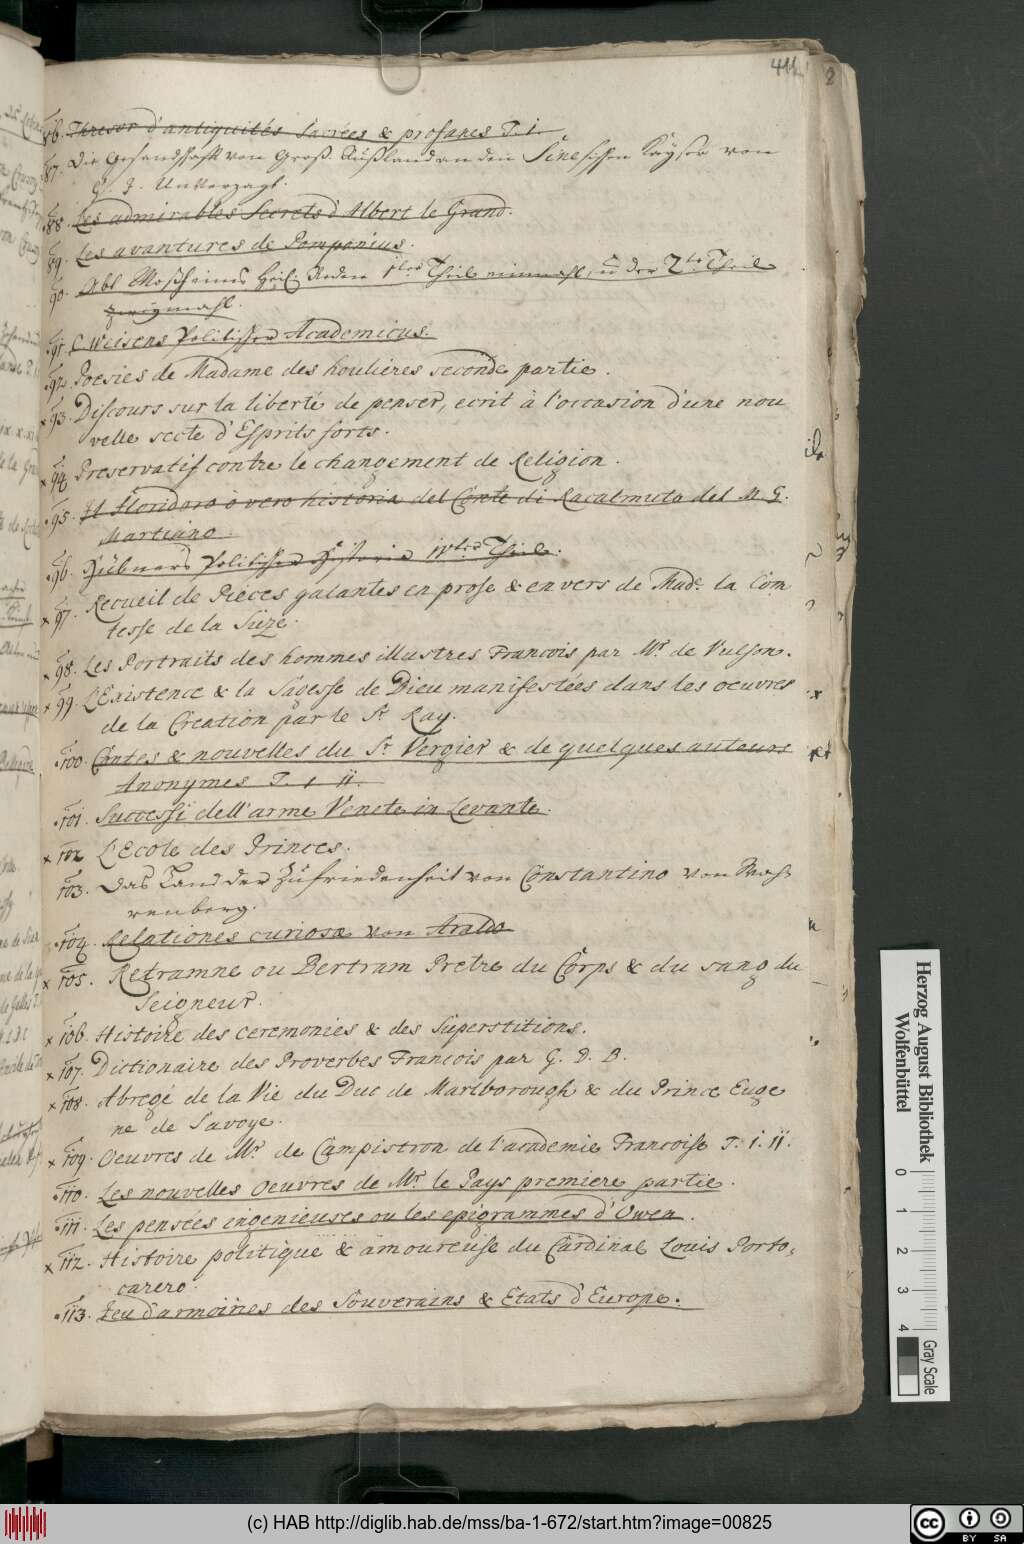 411
86. Thresor d'antiquités Sacrées & profanes T. i.
87. Die Gesandschafft von Groß. Rußland an den Sinesischen Kayser von
J. Unverzagt.
88. Les admirables Secrets d'Albert le Grand.
89. Les avantures de Pomponius.
90. Abt Moßheims Heil. Reden 1ter Theil einmahl, u der 2te Theil
zweymahl.
91. C Weisens Politischer Academicus.
92. Poesies de Madame des houlieres seconde partie.
93. Discours sur la liberté de penser, ecrit à l'occasion d'une nou
velle secte d'Esprits forts.
94. Preservatif contre le changement de Religion.
95. Il Floridoro overo historia del Conte di Racalmuto del M. G.
Martiano.
96. Hübners Politischer Historie Theil.
97. Recueil de Pieces galantes en prose & en vers de Mad. la Com
tesse de la Suze.
98. Les Portraits des hommes illustres Francois par Mr. de Vulson.
99. L'Existence & la Sagesse de Dieu manifestées dans les oeuvres
de la Creation par le Sr. Ray.
100. Contes & nouvelles du Sr. Vergier & de quelques auteurs
Anonymes T. i ii.
101. Successi dell'arme Venete in Levante.
102. L'Ecole des Princes.
103. Das Land der Zufriedenheit von Constantino von Wah
renberg.
104. Relationes curiosæ von
105. Retramne ou Bertram Pretre du Corps & du sang du
Seigneur.
106. Histoire des ceremonies & des Superstitions.
107. Dictionaire des Proverbes Francois par G. D. B.
108. Abregé de la Vie du Duc de Marlborough & du Prince Euge
ne de Savoye.
109. Oeuvres de Mr. de Campistron de l'academie Francoise T. i. ii.
110. Les nouvelles oeuvres de Mr. le Pays premiere partie.
111. Les pensées ingenieuses ou les epigrammes d'Owen.
112. Histoire politique & amoureuse du Cardinal Louis Porto,
carero.
113. Jeu d'armoiries des Souverains & Etats d'Europe.
Herzog August Bibliothek
Wolfenbüttel
0 1 2 3 4
Gray Scale
(c) HAB http://diglib.hab.de/mss/ba-1-672/start.htm?image=00825
cc BY SA